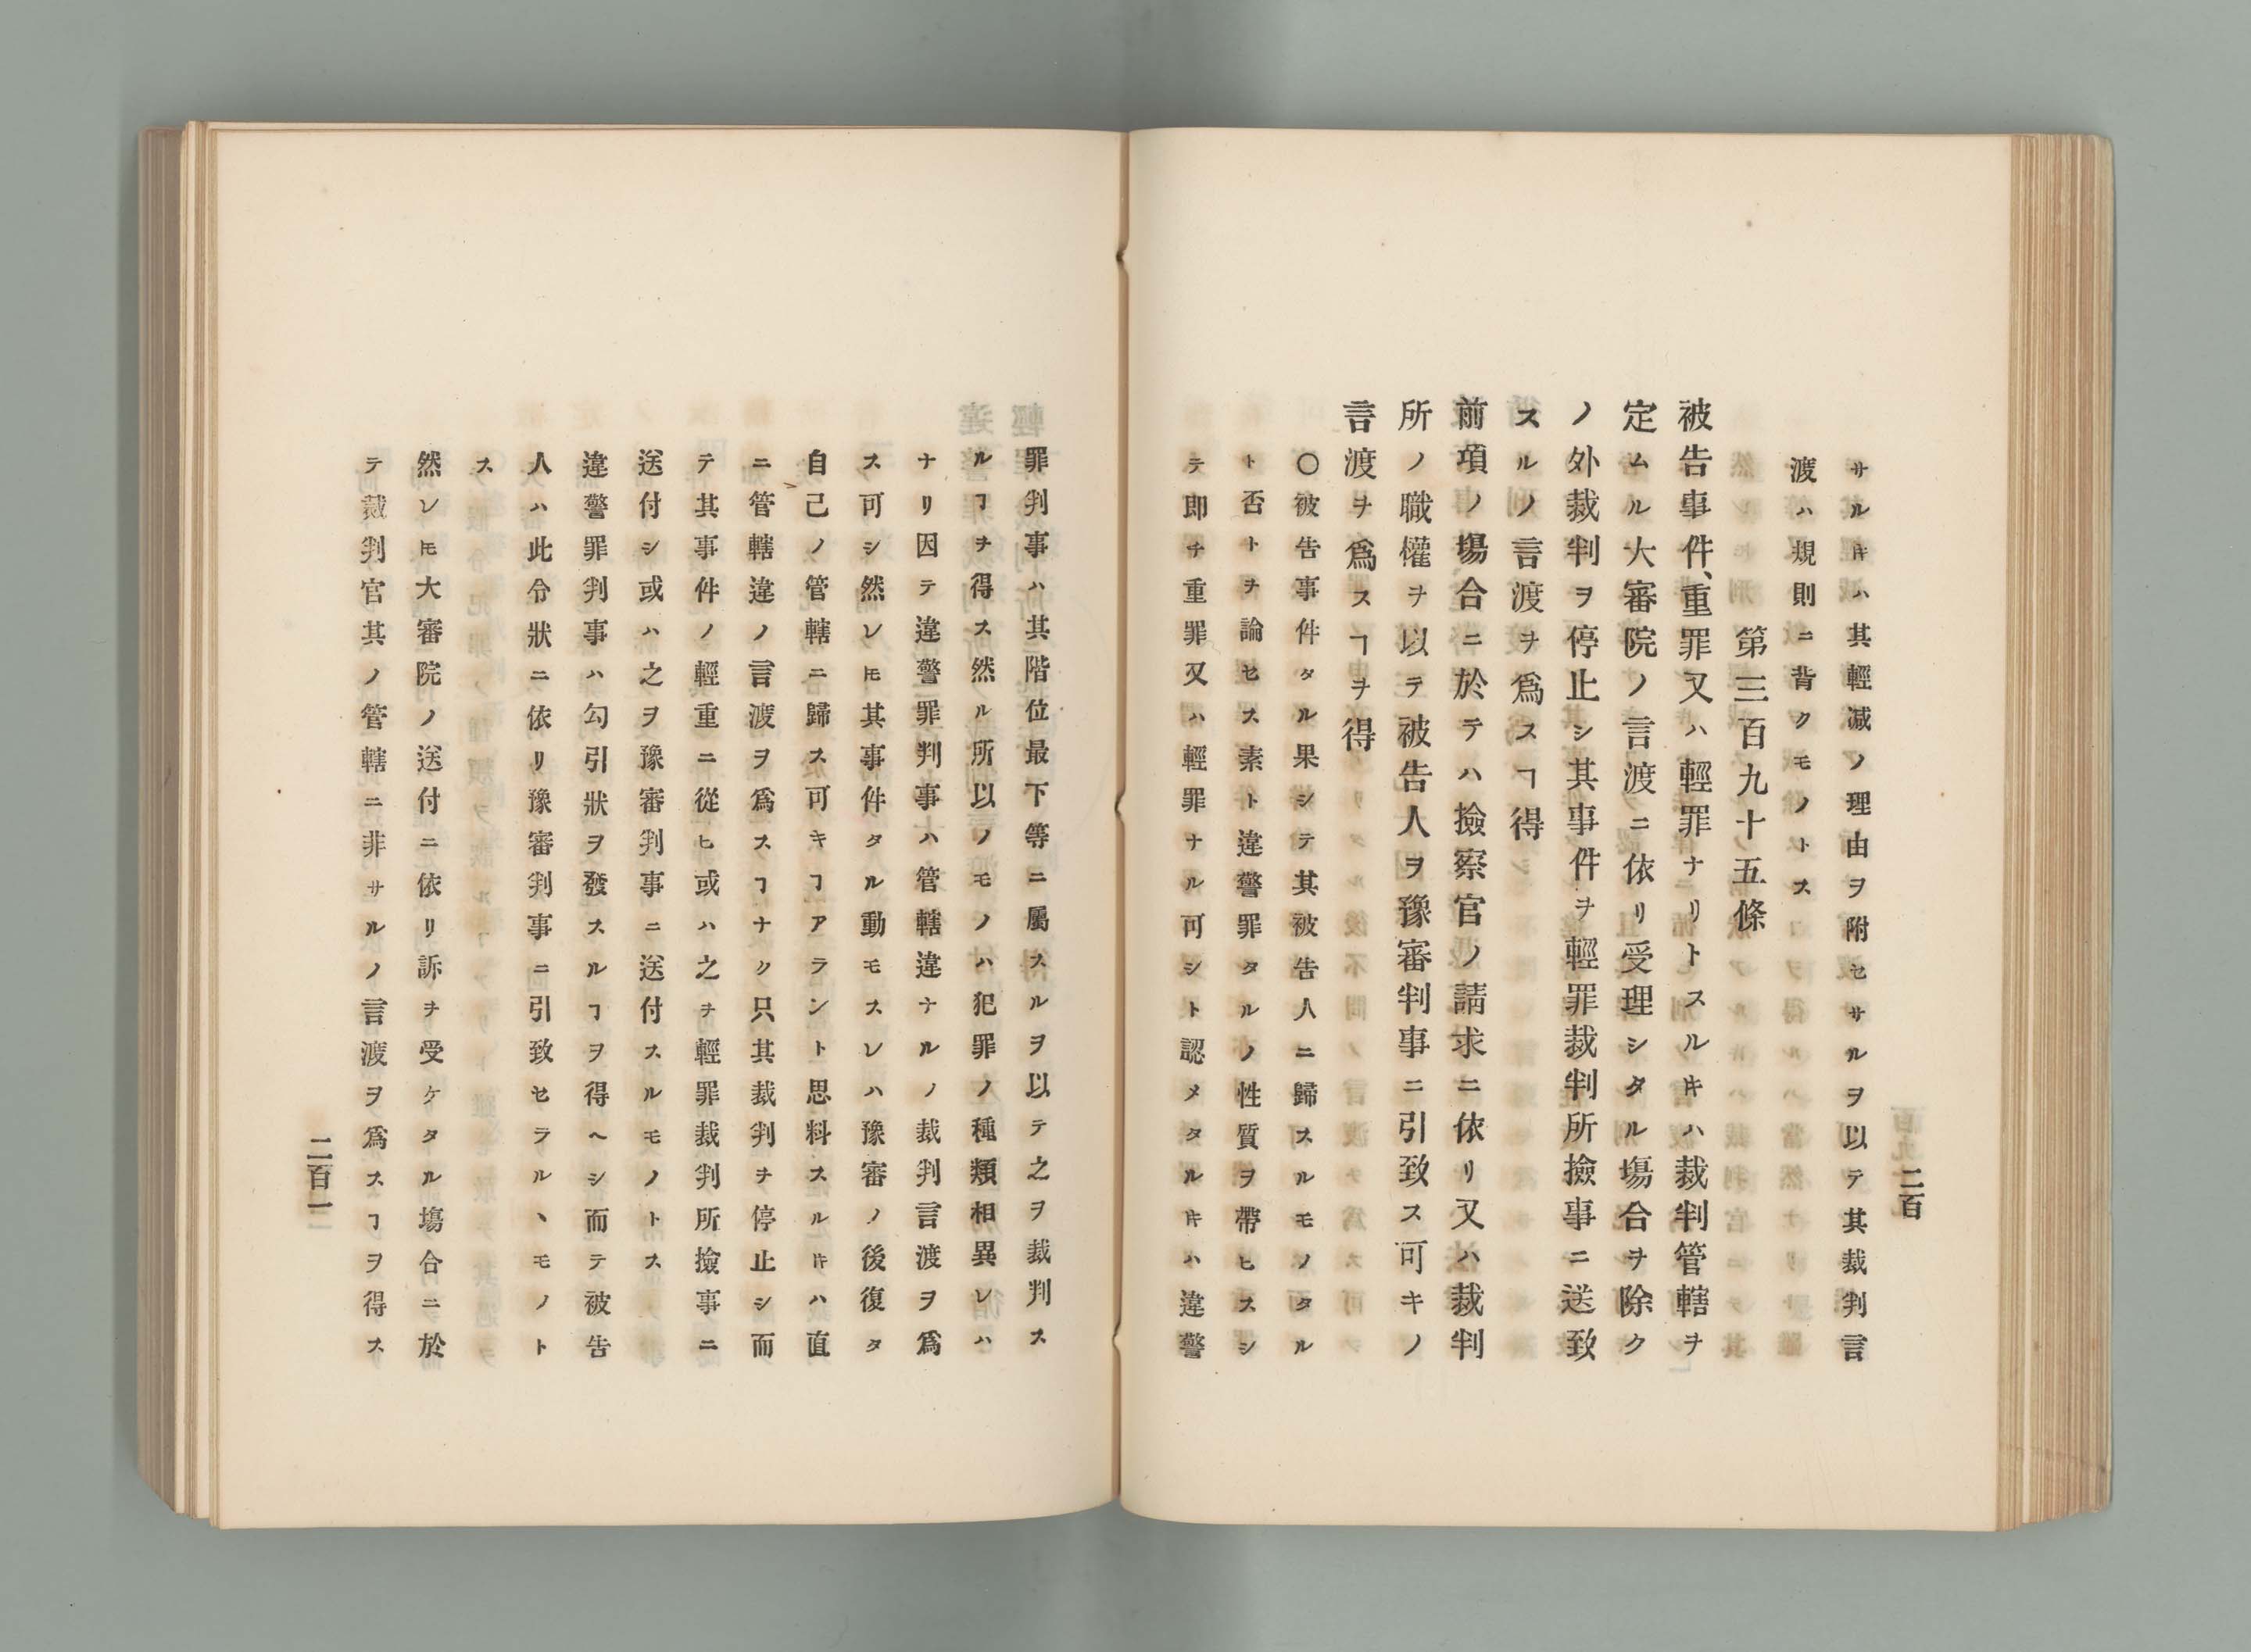 二百
サルキハ其輕減ノ理由ヲ附セサルヲ以テ其裁判言
渡ハ規則ニ背クモノトス
第三百九十五條
被告事件、重罪又ハ輕罪ナリトスルキハ裁判管轄ヲ
定ムル大審院ノ言渡ニ依リ受理シタル塲合ヲ除ク
ノ外裁判ヲ停止シ其事件ヲ輕罪裁判所撿事ニ送致
スルノ言渡ヲ爲スヿ得
前項ノ塲合ニ於テハ撿察官ノ請求ニ依リ又ハ裁判
所ノ職權ヲ以テ被告人ヲ豫審判事ニ引致ス可キノ
言渡ヲ爲スヿヲ得
〇被告事件タル果シテ其被告人ニ歸スルモノタル
ト否トヲ論セス素ト違警罪タルノ性質ヲ帶ヒスシ
テ即チ重罪又ハ輕罪ナル可シト認メタルキハ違警
罪判事ハ其階位最下等ニ屬スルヲ以テ之ヲ裁判ス
ルヿヲ得ス然ル所以ノモノハ犯罪ノ種類相異レハ
ナリ因テ違警罪判事ハ管轄違ナルノ裁判言渡ヲ爲
ス可シ然レ𪜈其事件タル動モスレハ豫審ノ後復タ
自己ノ管轄ニ歸ス可キヿアラント思料スルキハ直
ニ管轄違ノ言渡ヲ爲スヿナク只其裁判ヲ停止シ而
テ其事件ノ輕重ニ從ヒ或ハ之ヲ輕罪裁判所撿事ニ
送付シ或ハ之ヲ豫審判事ニ送付スルモノトス
違警罪判事ハ勾引狀ヲ發スルヿヲ得ヘシ而テ被告
人ハ此令狀ニ依リ豫審判事ニ引致セラルヽモノト
ス
然レ𪜈大審院ノ送付ニ依リ訴ヲ受ケタル塲合ニ於
テ裁判官其ノ管轄ニ非サルノ言渡ヲ爲スヿヲ得ス
二百一